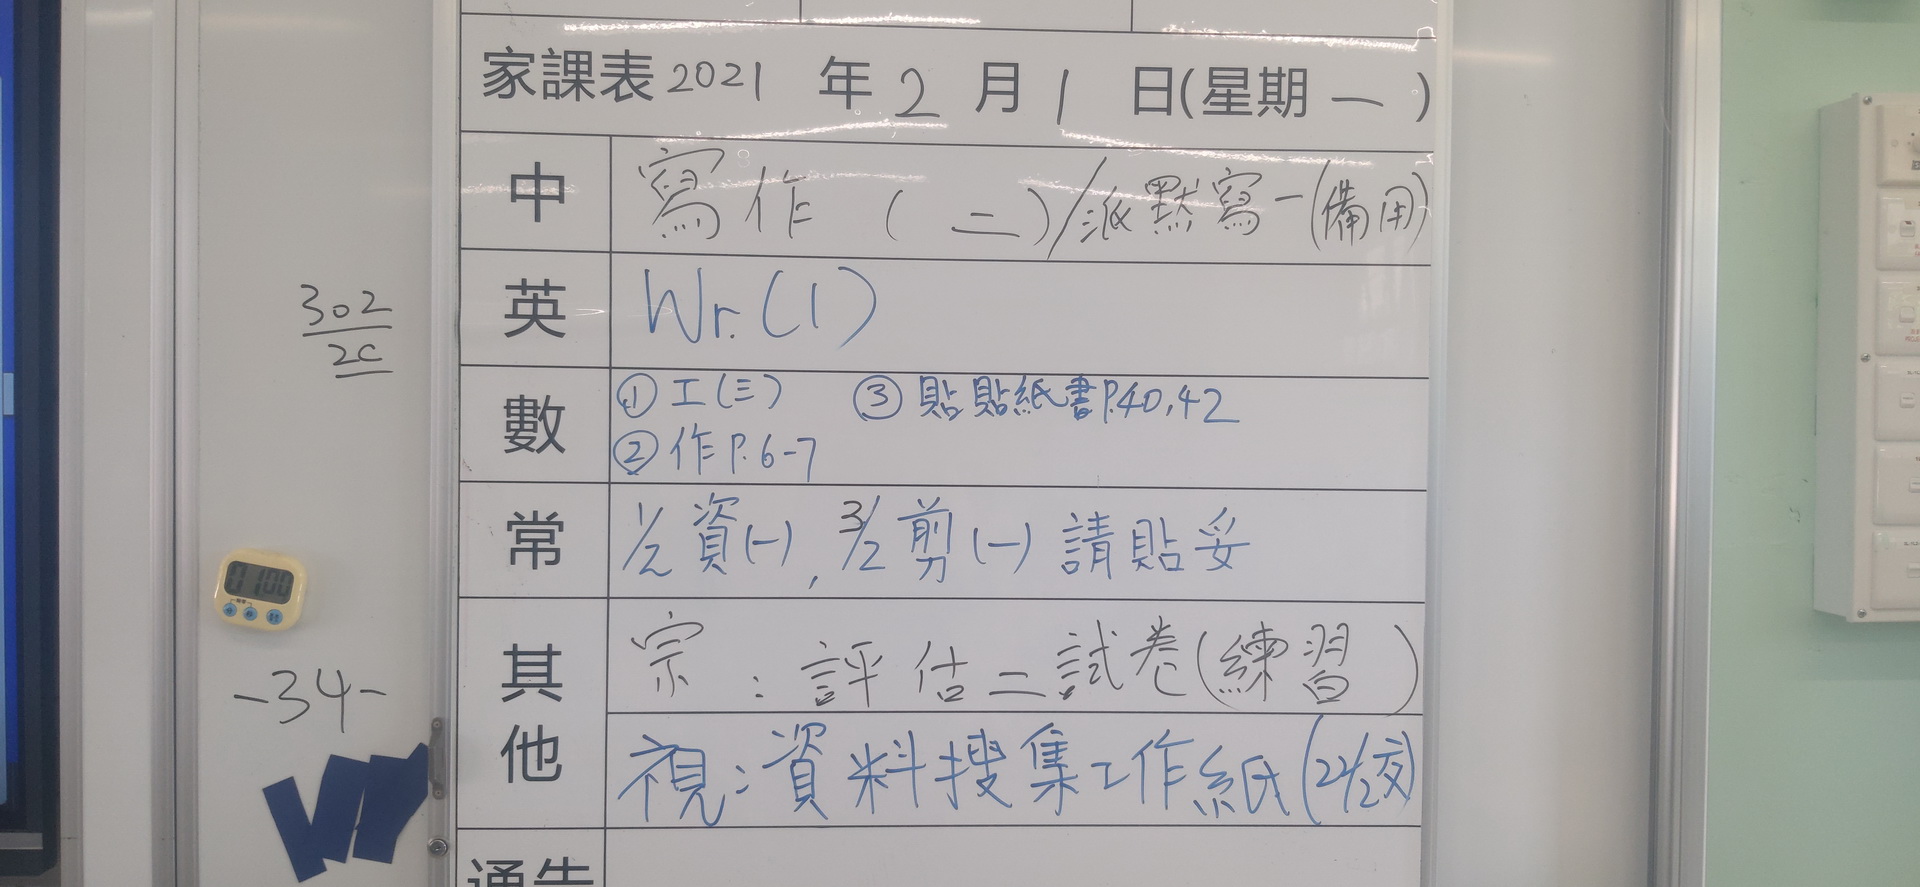 家課表 2021 年 2 月 1 日(星期一)
中 寫作(二)/派默寫一(備用)
英 Wr.(1)
數 ①工(三) ③貼貼紙書P.40,42
②作P.6-7
常 1/2資(一), 3/2剪(一)請貼妥
其他 宗:評估二試卷(練習)
視:資料搜集工作紙(22/2交)
通告
302
2C
-34-
01:00